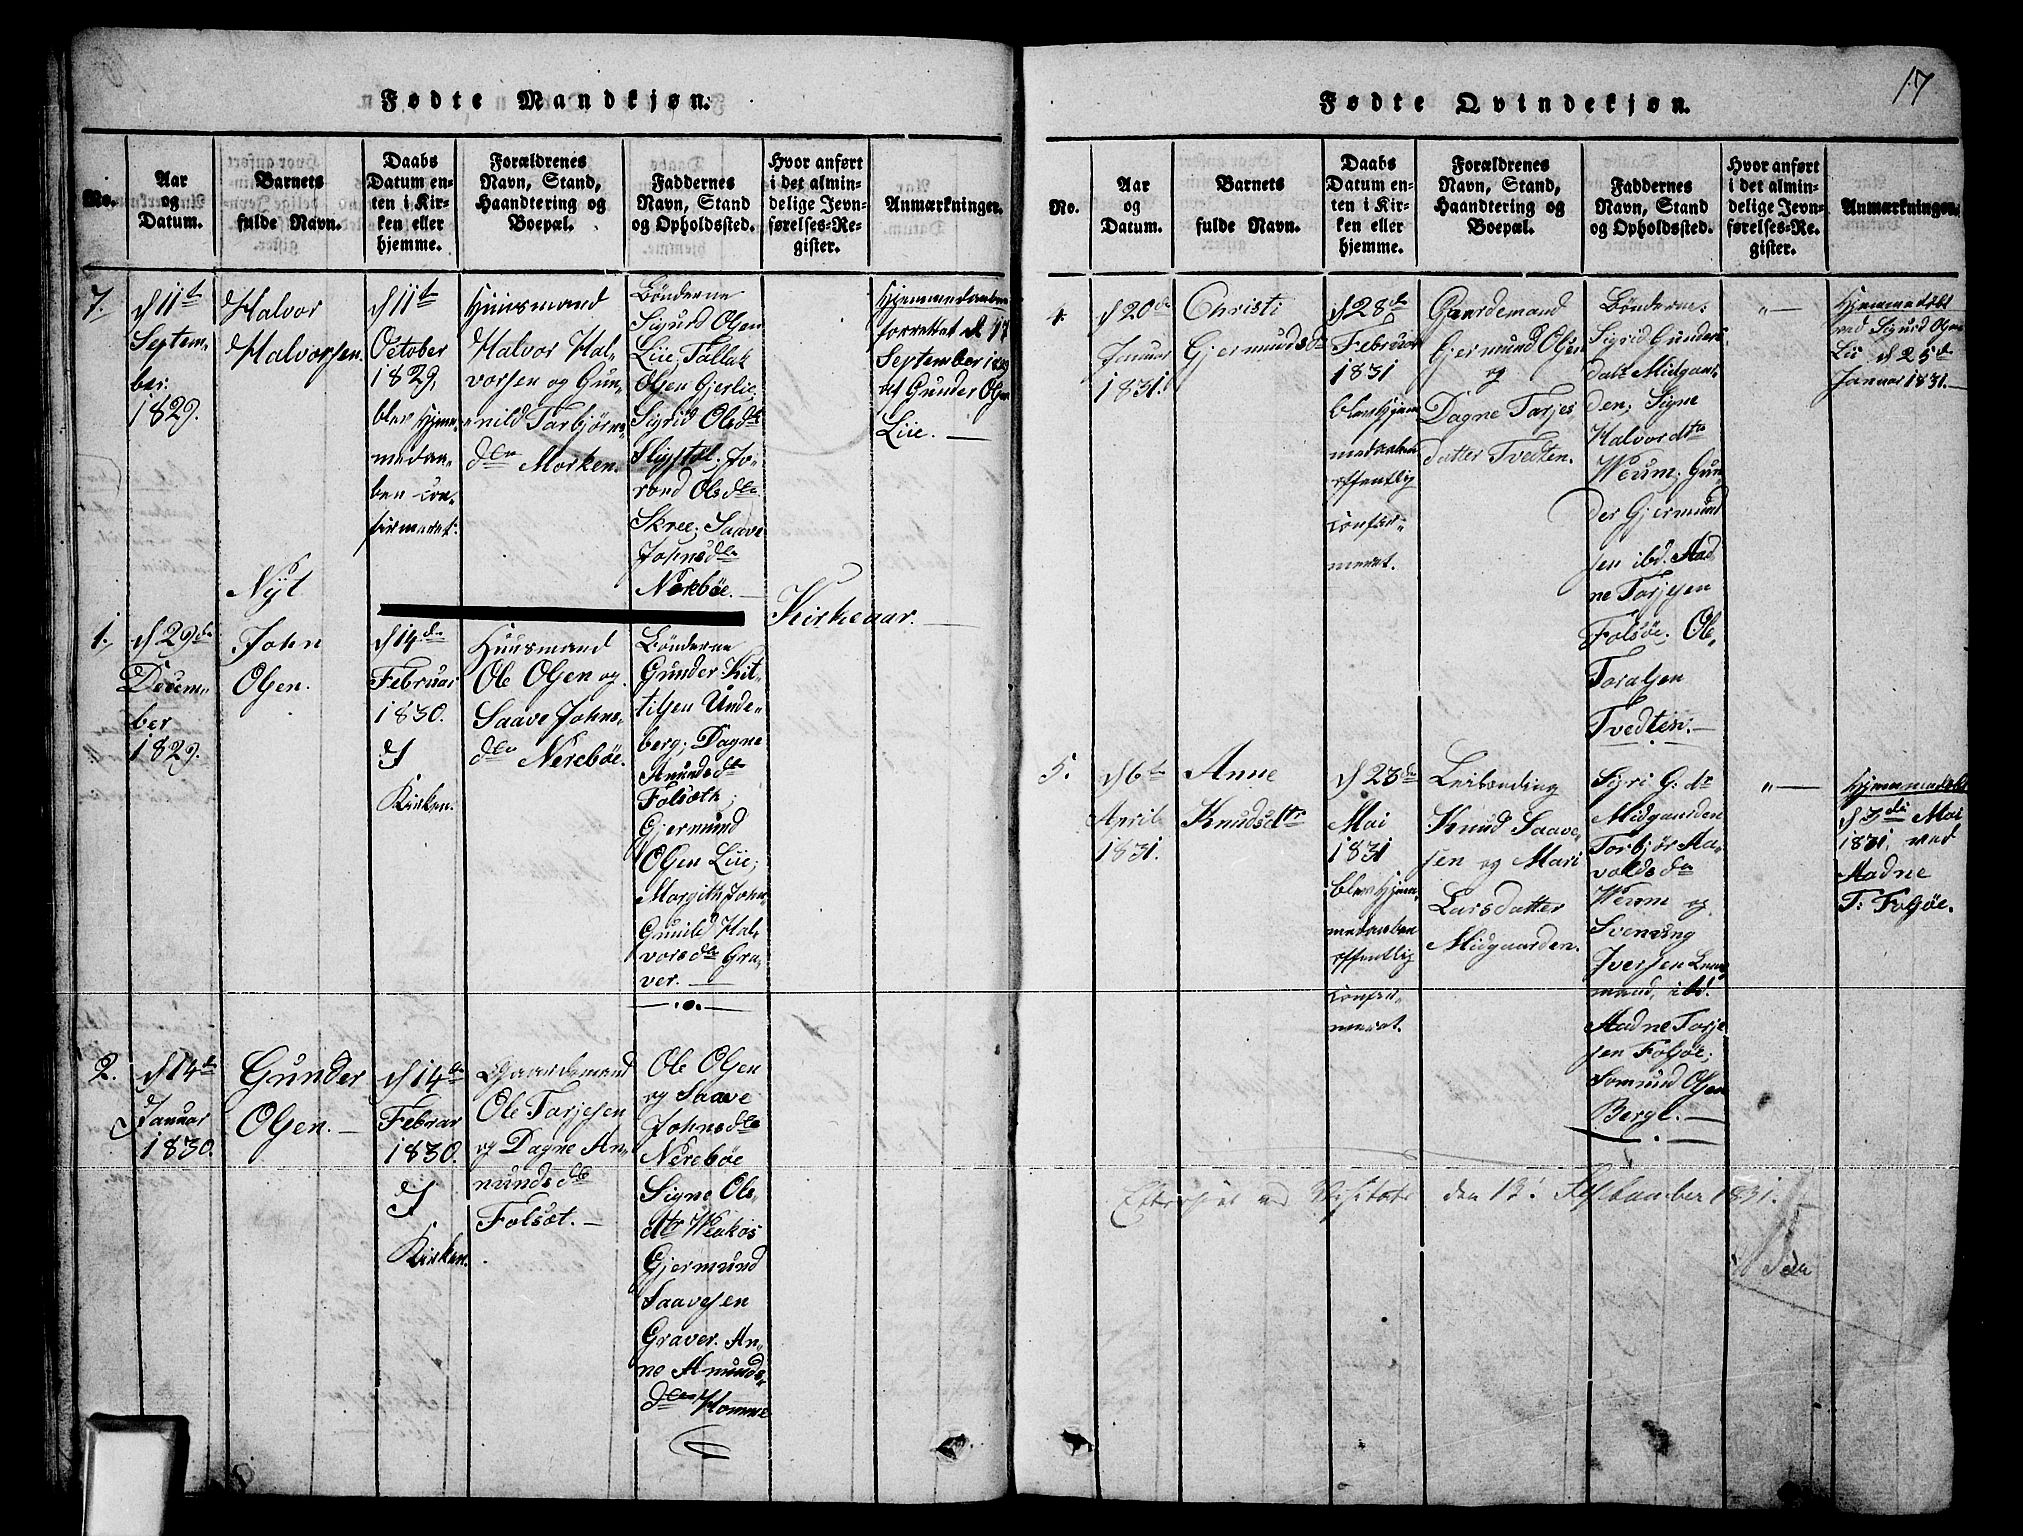 17
Fødte Mandkjøn.
No.
Aar
og
Datum.
Barnets
fulde Navn.
Daabs
Datum en-
ten i Kir-
ken eller
hjemme.
Forældrenes
Navn, Stand,
Haandtering og
Boepæl.
Faddernes
Navn, Stand
og Opholdssted.
Hvor anført
i det almin-
delige Jevn-
førelses-Re-
gister.
Anmærkninger.
7.
d 11te
Septem-
ber.
1829.
Halvor
Halvorsen.
d 11te
October
1829,
blev hjem-
medaa-
ben con-
firmeret.
Huusmand
Halvor Hal-
vorsen og Gun-
nild Torbjørns-
dtr Morken.
Bønderne
Sigurd Olsen
Liie, Tollak
Olsen Gjerlie,
Sigrid Olsdtr
Sligstøl, To-
rand Olsdtr
Skree, Saave
Johnsdtr
Nerebøe.
Hjemmedaaben
forrettet d 17
September 1829
af Gunder Olsen
Liie.
Nyt
Kirkeaar.
1.
d 29de
Decem-
ber
1829.
John
Olsen.
d 14de
Februar
1830.
I
Kirken.
Huusmand
Ole Olsen og
Saave Johns-
dtr Nerebøe.
Bønderne
Gunder Kit-
tilsen Unde-
berg, Dagne
Anundsdtr
Folsøth,
Gjermund
Olsen Liie,
Margith John
Gunild Hal-
vorsdtr Gra-
ver.
2.
d 14de
Januar
1830.
Gunder
Olsen.
d 14de
Februar
1830.
I
Kirken.
Gaardemand
Ole Tarjesen
og Dagne An-
nundsdtr
Folsøt.
Ole Olsen
og Saave
Johnsdtr
Nerebøe
Signe Ols-
dtr
Gjermund
Saavesen
Graver. An-
ne Amunds-
dtr Homme
Fødte Qvindekjøn.
No.
Aar
og
Datum.
Barnets
fulde Navn.
Daabs
Datum en-
ten i Kir-
ken eller
hjemme.
Forældrenes
Navn, Stand,
Haandtering og
Boepæl.
Faddernes
Navn, Stand
og Opholdssted.
Hvor anført
i det almin-
delige Jevn-
førelses-Re-
gister.
Anmærkninger.
4.
d 20de
Januar
1831.
Christi
Gjermundsdr
d 28de
Februar
1831
blev hjem
medaaben
offentlig
confir-
meret.
Gaardemand
Gjermund Olsen
og
Dagne Tarjes
datter Tvedten.
Bønderne:
Sigrid Gunders
datt Midgaar
den; Signe
Halvordtr
Weum; Gun-
der Gjermund
sen ibd. Aad
ne Tarjesen
Folsøe. Ole
Toralsen
Tvedten.
"
Hjemmedøbt
ved Sigurd Olsen
Lii d 25de
Januar 1831.
5.
d 6te
April
1831.
Anne
Knudsdtr
d 23de
Mai
1831
blev hjem
medaaben
offentlig
confir-
meret.
Leilending
Knud Saave-
sen og Mari
Larsdatter
Midgaarden.
Sigri G: dr
Midgaarden
Torbjør Ha-
valdsdr
Weum og
Svenung
Iversen
mand, ibd.
Aadne Tarje
sen Folsøe;
Somund Olsen
Bergl.
"
Hjemmedøbt
d 3die Mai
1831, ved
Aadne
T: Folsøe.
Efterseet ved Visitats den 13 September 1831.